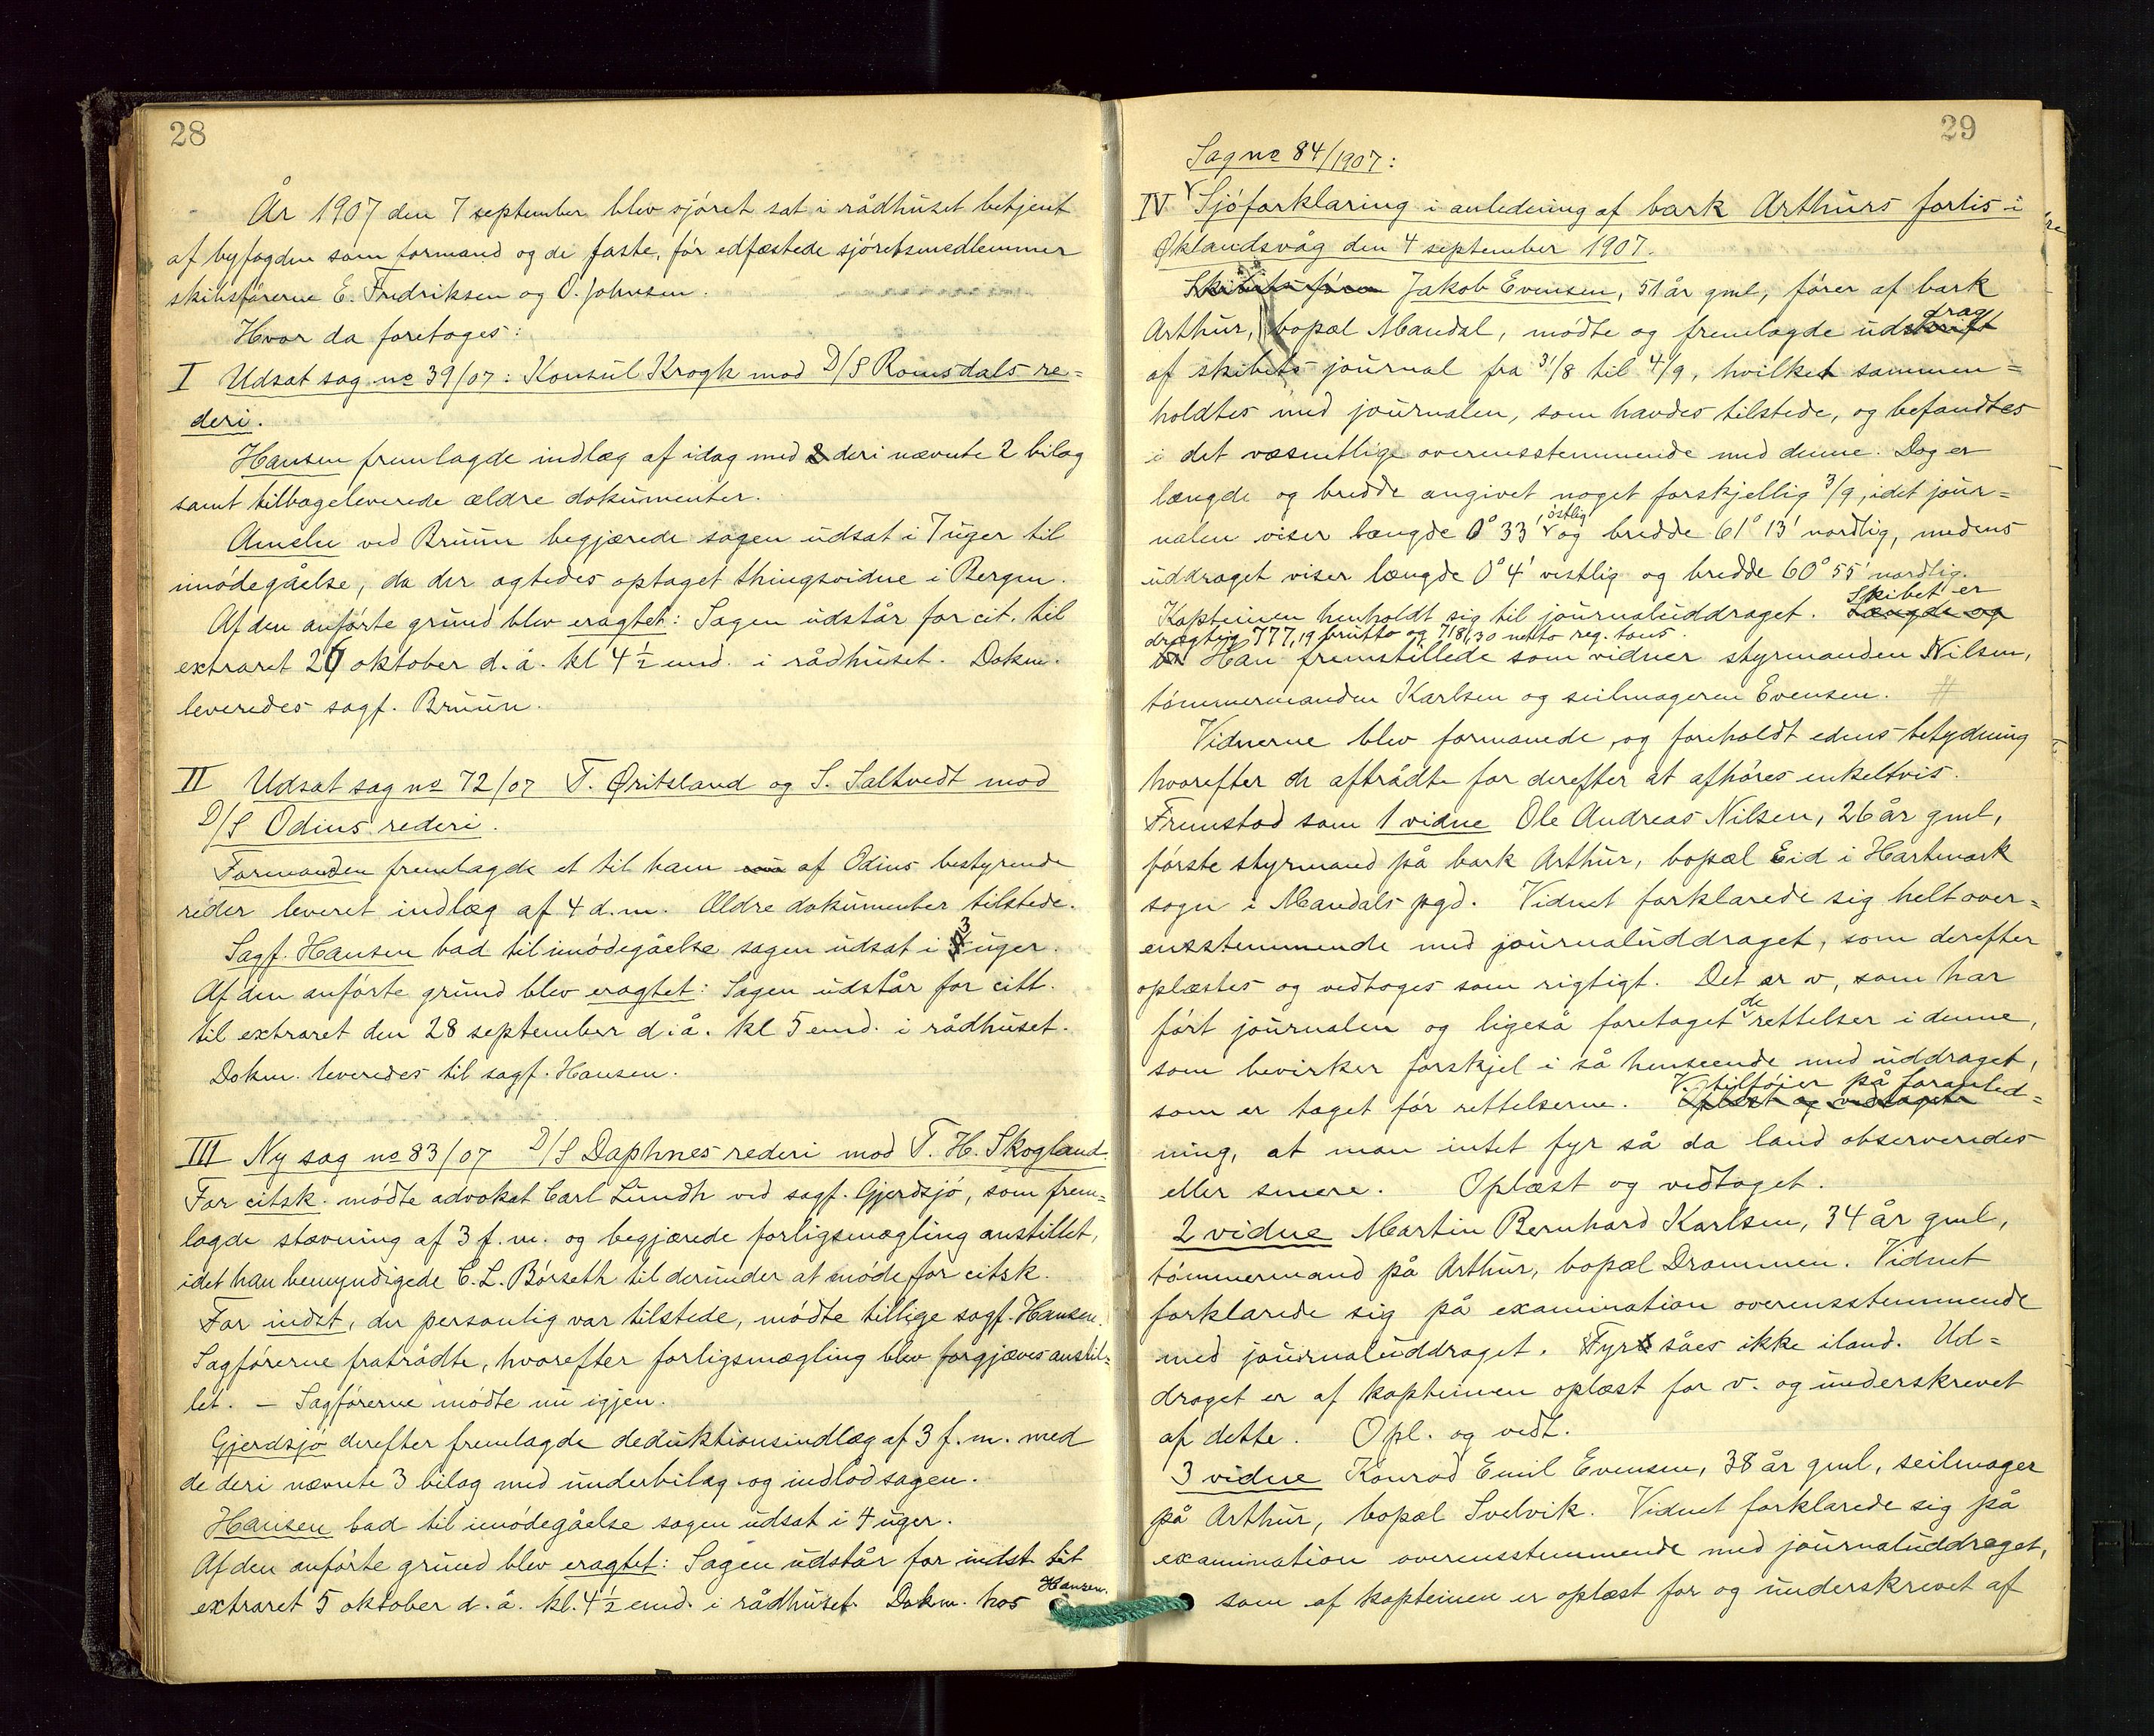 28
År 1907 den 7 september blev sjøret sat i rådhuset betjent
af byfogden som formand og de faste, før edfæstede sjøretsmedlemmer
skibsførerne E. Fredriksen og O. Johnsen.
Hvor da foretoges:
I Udsat sag no 39/07: Konsul Krogh mod D/S Romsdals re=
deri.
Hansen fremlagde indlæg af idag med deri nævnte 2 bilag
samt tilbageleverede ældre dokumenter.
Ameln ved Bruun begjærede sagen udsat i 7 uger til
imødegåelse, da der agtedes optaget thingsvidne i Bergen.
Af den anførte grund blev eragtet: Sagen udstår for cit. til
extraret 26 oktober d. å. kl 4 1/2 emd. i rådhuset. Dokm.
leveredes sagf. Bruun.
II Udsat sag no 72/07 T. Øritsland og S. Saltvedt mod
D/S Odins rederi.
Formanden fremlagde et til ham af Odins bestyrende
reder leveret indlæg af 4 d. m. Ældre dokumenter tilstede.
Sagf. Hansen bad til imødegåelse sagen udsat i 3 uger.
Af den anførte grund blev eragtet: Sagen udstår for citt.
til extraret den 28 september d. å. kl 5 emd. i rådhuset.
Dokm. leveredes til sagf. Hansen.
III Ny sag no 83/07 D/S Daphnes rederi mod T. H. Skogland
For citsk. mødte advokat Carl Lundh ved sagf. Gjerdsjø, som frem=
lagde stævning af 3 f. m. og begjærede forligsmægling anstillet,
idet han bemyndigede C. L. Børseth til derunder at møde for citsk.
For indst, der personlig var tilstede, mødte tillige sagf. Hansen.
Sagførerne fratrådte, hvorefter forligsmægling blev forgjæves anstil=
let. – Sagførerne mødte nu igjen.
Gjerdsjø derefter fremlagde deduktionsindlæg af 3 f. m. med
de deri nævnte 3 bilag med underbilag og indlod sagen.
Hansen bad til imødegåelse sagen udsat i 4 uger.
Af den anførte grund blev eragtet: Sagen udstår for indst til
extraret 5 oktober d. å. kl. 4 1/2 emd. i rådhuset. Dokm. hos Hansen.
29
Sag no 84/1907:
IV Sjøforklaring i anledning af bark Arthurs forlis i
Øklandsvåg den 4 september 1907.
Skibets fører Jakob Evensen, 51 år gml, fører af bark
Arthur, bopæl Mandal, mødte og fremlagde uddrag
af skibets journal fra 31/8 til 4/9, hvilket sammen=
holdtes med journalen, som havdes tilstede, og befandtes
i det væsentlige overensstemmende med denne. Dog er
længde og bredde angivet noget forskjellig 3/9, idet jour=
nalen viser længde 0° 33' østlig og bredde 61° 13' nordlig, medens
uddraget viser længde 0° 4' vestlig og bredde 60° 55' nordlig.
Kapteinen henholdt sig til journaluddraget. Længde og Skibet er
drægtig 777,19 brutto og 718,30 netto reg. tons.
Han fremstillede som vidner styrmanden Nilsen,
tømmermanden Karlsen og seilmageren Evensen. #
Vidnerne blev formanede, og foreholdt edens betydning
hvorefter de aftrådte for derefter at afhøres enkeltvis.
Fremstod som 1 vidne Ole Andreas Nilsen, 26 år gml,
første styrmand på bark Arthur, bopæl Eid i Hartmark
sogn i Mandals pgd. Vidnet forklarede sig helt over=
ensstemmende med journaluddraget, som derefter
oplæstes og vedtoges som rigtigt. Det er v, som har
ført journalen og ligeså foretaget de rettelser i denne,
som bevirker forskjel i så henseende med uddraget,
som er taget før rettelserne. Oplæst og vedtaget V. tilføier på foranled=
ning, at man intet fyr så da land observeredes
eller senere. Oplæst og vedtaget.
2 vidne Martin Bernhard Karlsen, 34 år gml,
tømmermand på Arthur, bopæl Drammen. Vidnet
forklarede sig på examination overensstemmende
med journaluddraget. Fyr såes ikke iland. Ud=
draget er af kapteinen oplæst for v. og underskrevet
af dette. Opl. og vedt.
3 vidne Konrad Emil Evensen, 38 år gml, seilmager
på Arthur, bopæl Svelvik. Vidnet forklarede sig på
examination overensstemmende med journaluddraget,
som af kapteinen er oplæst for og underskrevet af